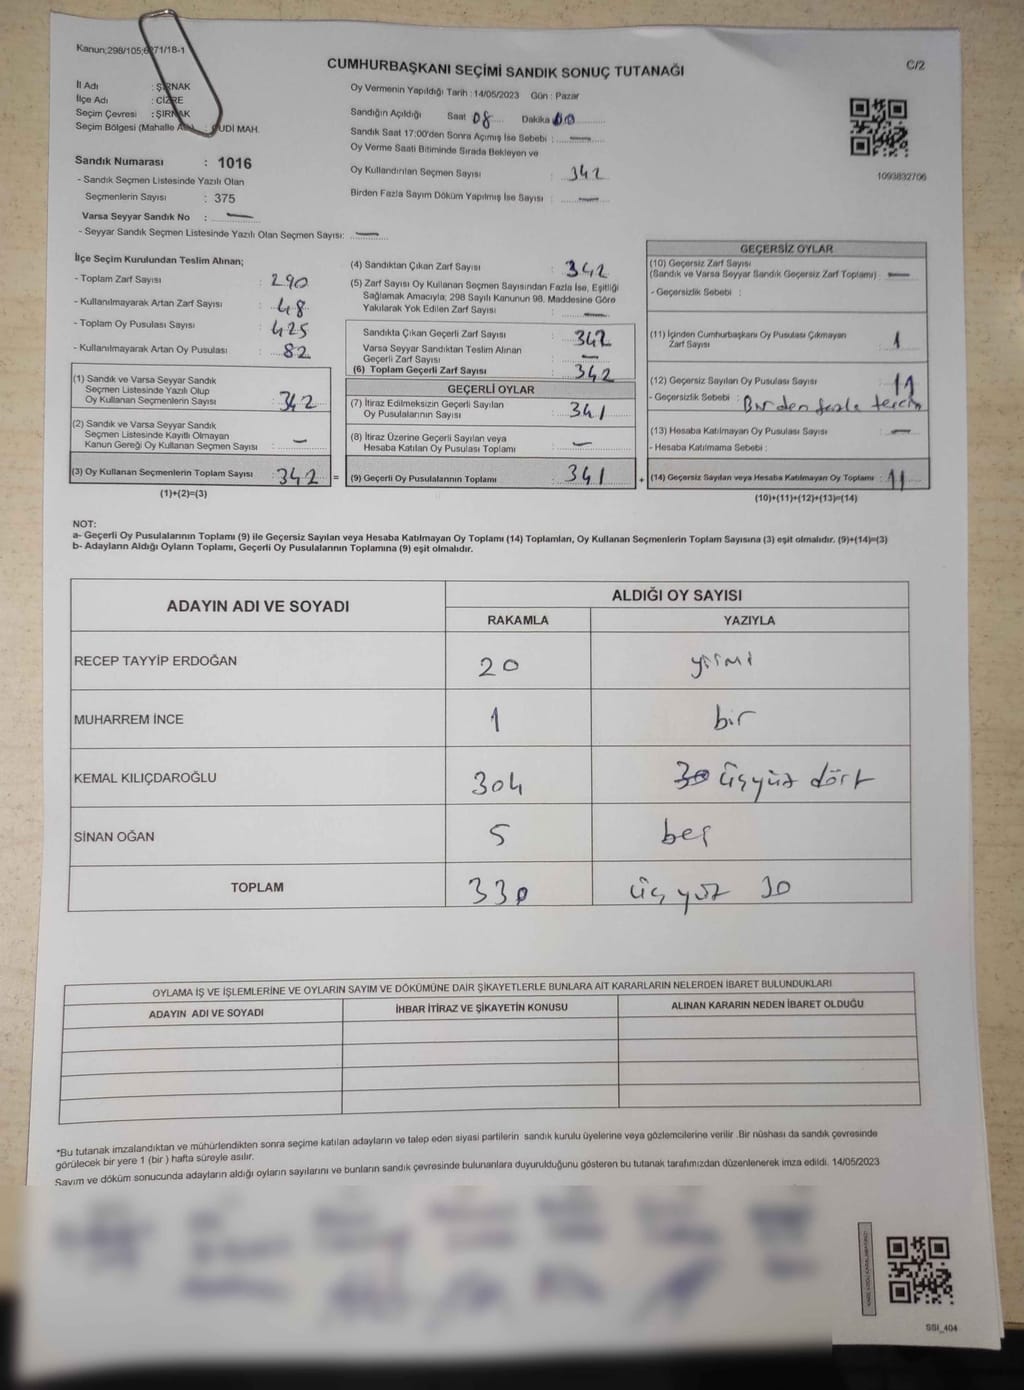 Kanun;298/105;6271/18-1
C/2
CUMHURBAŞKANI SEÇİMİ SANDIK SONUÇ TUTANAĞI
İl Adı : ŞIRNAK
İlçe Adı : CİZRE
Seçim Çevresi : ŞIRNAK
Seçim Bölgesi (Mahalle CUDİ MAH.
Sandık Numarası : 1016
- Sandık Seçmen Listesinde Yazılı Olan
Seçmenlerin Sayısı : 375
Varsa Seyyar Sandık No : —
- Seyyar Sandık Seçmen Listesinde Yazılı Olan Seçmen Sayısı: —
Oy Vermenin Yapıldığı Tarih : 14/05/2023 Gün : Pazar
Sandığın Açıldığı Saat 08 Dakika 00
Sandık Saat 17:00'den Sonra Açımış İse Sebebi : —
Oy Verme Saati Bitiminde Sırada Bekleyen ve
Oy Kullandırılan Seçmen Sayısı : 342
Birden Fazla Sayım Döküm Yapılmış İse Sayısı : —
1093832706
İlçe Seçim Kurulundan Teslim Alınan;
- Toplam Zarf Sayısı : 290
- Kullanılmayarak Artan Zarf Sayısı : 48
- Toplam Oy Pusulası Sayısı : 425
- Kullanılmayarak Artan Oy Pusulası : 82
(1) Sandık ve Varsa Seyyar Sandık
Seçmen Listesinde Yazılı Olup
Oy Kullanan Seçmenlerin Sayısı : 342
(2) Sandık ve Varsa Seyyar Sandık
Seçmen Listesinde Kayıtlı Olmayan
Kanun Gereği Oy Kullanan Seçmen Sayısı : —
(3) Oy Kullanan Seçmenlerin Toplam Sayısı : 342 =
(1)+(2)=(3)
(4) Sandıktan Çıkan Zarf Sayısı : 342
(5) Zarf Sayısı Oy Kullanan Seçmen Sayısından Fazla İse, Eşitliği
Sağlamak Amacıyla; 298 Sayılı Kanunun 98. Maddesine Göre
Yakılarak Yok Edilen Zarf Sayısı : —
Sandıkta Çıkan Geçerli Zarf Sayısı : 342
Varsa Seyyar Sandıktan Teslim Alınan
Geçerli Zarf Sayısı : —
(6) Toplam Geçerli Zarf Sayısı : 342
GEÇERLİ OYLAR
(7) İtiraz Edilmeksizin Geçerli Sayılan
Oy Pusulalarının Sayısı : 341
(8) İtiraz Üzerine Geçerli Sayılan veya
Hesaba Katılan Oy Pusulası Toplamı : —
(9) Geçerli Oy Pusulalarının Toplamı : 341 +
GEÇERSİZ OYLAR
(10) Geçersiz Zarf Sayısı
(Sandık ve Varsa Seyyar Sandık Geçersiz Zarf Toplamı) : —
- Geçersizlik Sebebi :
(11) İçinden Cumhurbaşkanı Oy Pusulası Çıkmayan
Zarf Sayısı : 1
(12) Geçersiz Sayılan Oy Pusulası Sayısı : 11
- Geçersizlik Sebebi : Birden fazla tercih
(13) Hesaba Katılmayan Oy Pusulası Sayısı : —
- Hesaba Katılmama Sebebi :
(14) Geçersiz Sayılan veya Hesaba Katılmayan Oy Toplamı : 11
(10)+(11)+(12)+(13)=(14)
NOT:
a- Geçerli Oy Pusulalarının Toplamı (9) ile Geçersiz Sayılan veya Hesaba Katılmayan Oy Toplamı (14) Toplamları, Oy Kullanan Seçmenlerin Toplam Sayısına (3) eşit olmalıdır. (9)+(14)=(3)
b- Adayların Aldığı Oyların Toplamı, Geçerli Oy Pusulalarının Toplamına (9) eşit olmalıdır.
ADAYIN ADI VE SOYADI
ALDIĞI OY SAYISI
RAKAMLA YAZIYLA
RECEP TAYYİP ERDOĞAN 20 yirmi
MUHARREM İNCE 1 bir
KEMAL KILIÇDAROĞLU 304 üçyüz dört
SİNAN OĞAN 5 beş
TOPLAM 330 üç yüz 30
OYLAMA İŞ VE İŞLEMLERİNE VE OYLARIN SAYIM VE DÖKÜMÜNE DAİR ŞİKAYETLERLE BUNLARA AİT KARARLARIN NELERDEN İBARET BULUNDUKLARI
ADAYIN ADI VE SOYADI İHBAR İTİRAZ VE ŞİKAYETİN KONUSU ALINAN KARARIN NEDEN İBARET OLDUĞU
*Bu tutanak imzalandıktan ve mühürlendikten sonra seçime katılan adayların ve talep eden siyasi partilerin sandık kurulu üyelerine veya gözlemcilerine verilir .Bir nüshası da sandık çevresinde
görülecek bir yere 1 (bir ) hafta süreyle asılır.
Sayım ve döküm sonucunda adayların aldığı oyların sayılarını ve bunların sandık çevresinde bulunanlara duyurulduğunu gösteren bu tutanak tarafımızdan düzenlenerek imza edildi. 14/05/2023
SSI_404